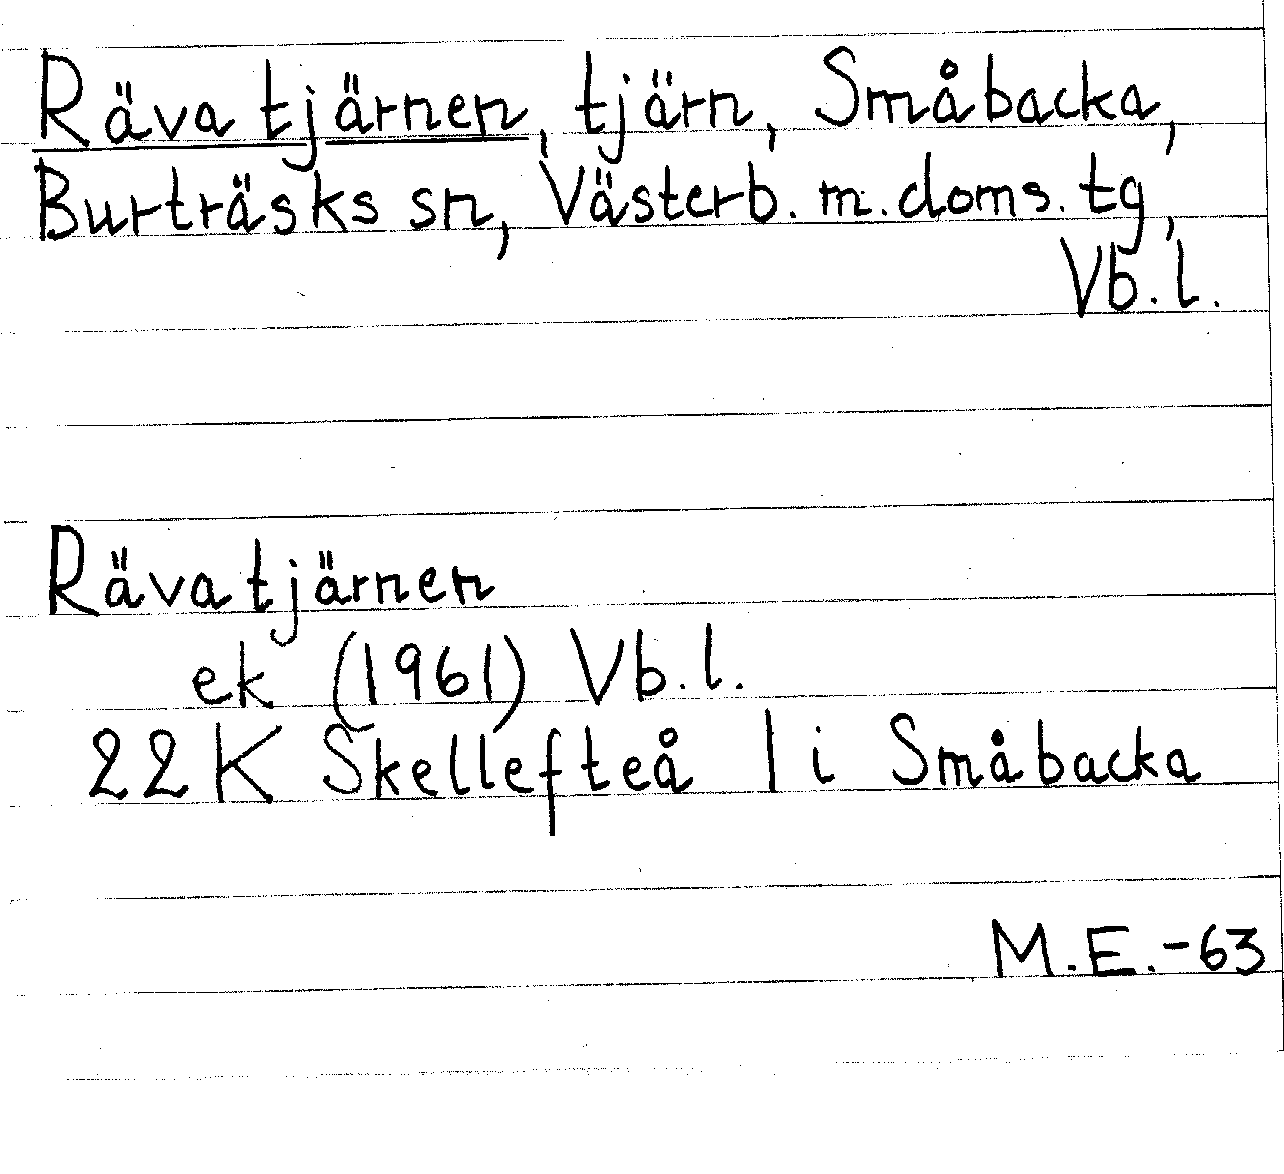 Rävatjärnen, tjärn, Småbacka,
Burträsks sn, Västerb. m. doms. tg,
Vb. l.
Rävatjärnen
ek (1961) Vb. l.
22 K Skellefteå | i Småbacka
M.E.-63